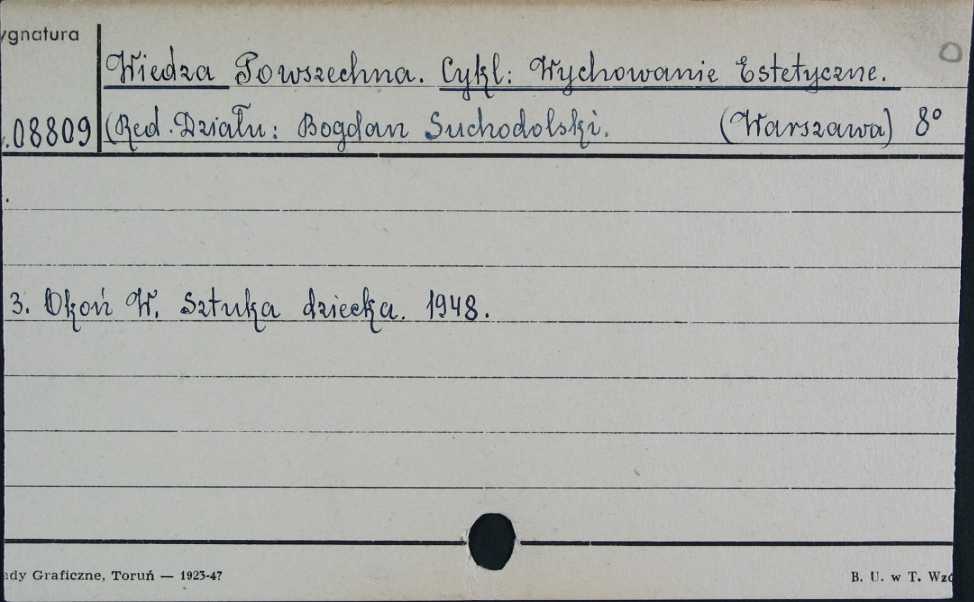 ygnatura
Wiedza Powszechna. Cykl: Wychowanie Estetyczne.
.08809 (Red. Działu: Bogdan Suchodolski. (Warszawa) 8°
3. Okoń W. Sztuka dziecka. 1948.
ady Graficzne, Toruń — 1923-47
B. U. w T. Wzó